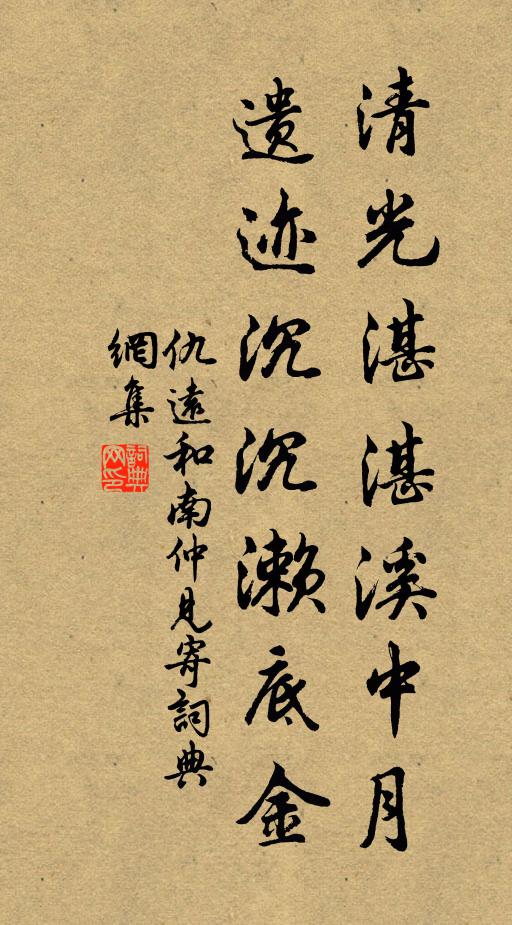 清光湛湛溪中月
遗迹沉沉濑底金
仇遠和南仲見寄詞典
網集
詞典
网印